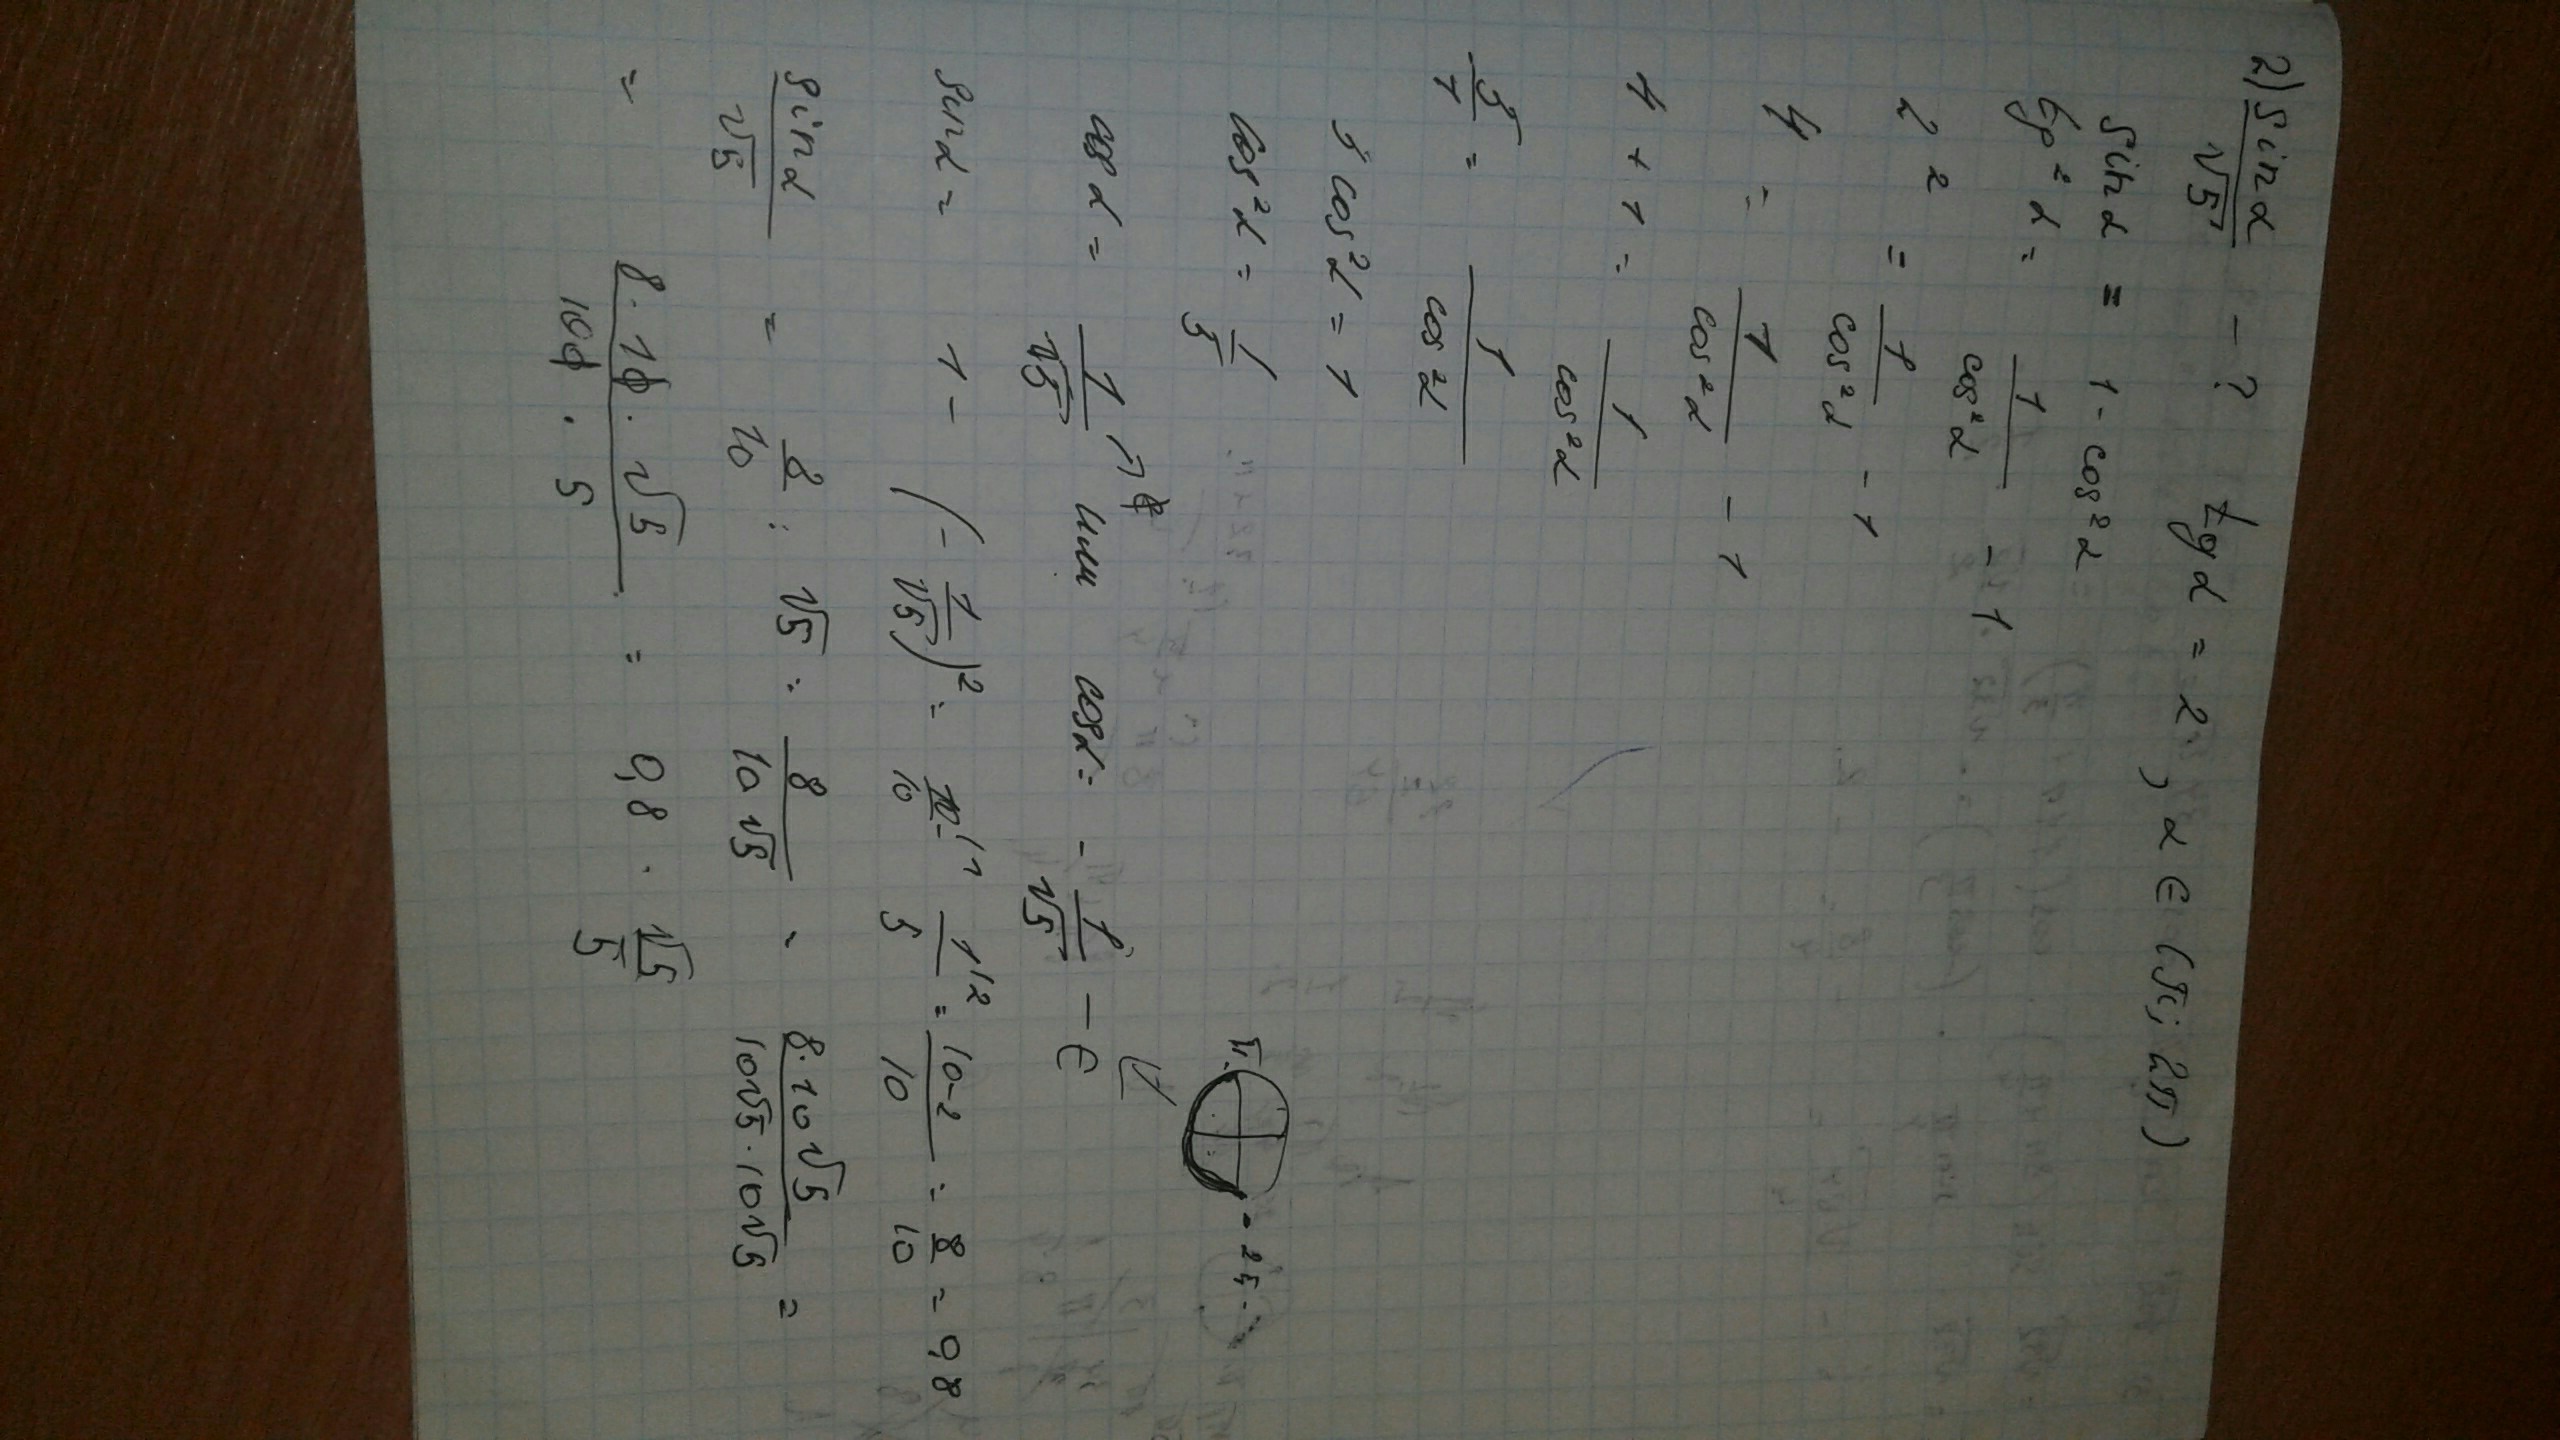 2) sinα/√5 - ? tgα = 2, α ∈ (π; 2π)
sinα = 1 - cos²α
tg²α = 1/cos²α - 1
2² = 1/cos²α - 1
4 = 1/cos²α - 1
4 + 1 = 1/cos²α
5/1 = 1/cos²α
5cos²α = 1
cos²α = 1/5
π 2π
cosα = 1/√5 ∉ или cosα = - 1/√5 - ∈
sinα = 1 - (- 1/√5)² = 10/10 - 1/5 = 10-2/10 = 8/10 = 0,8
sinα/√5 = 8/10 : √5 = 8/10√5 = 8·10√5/10√5·10√5 =
= 8·10·√5/100·5 = 0,8 · √5/5